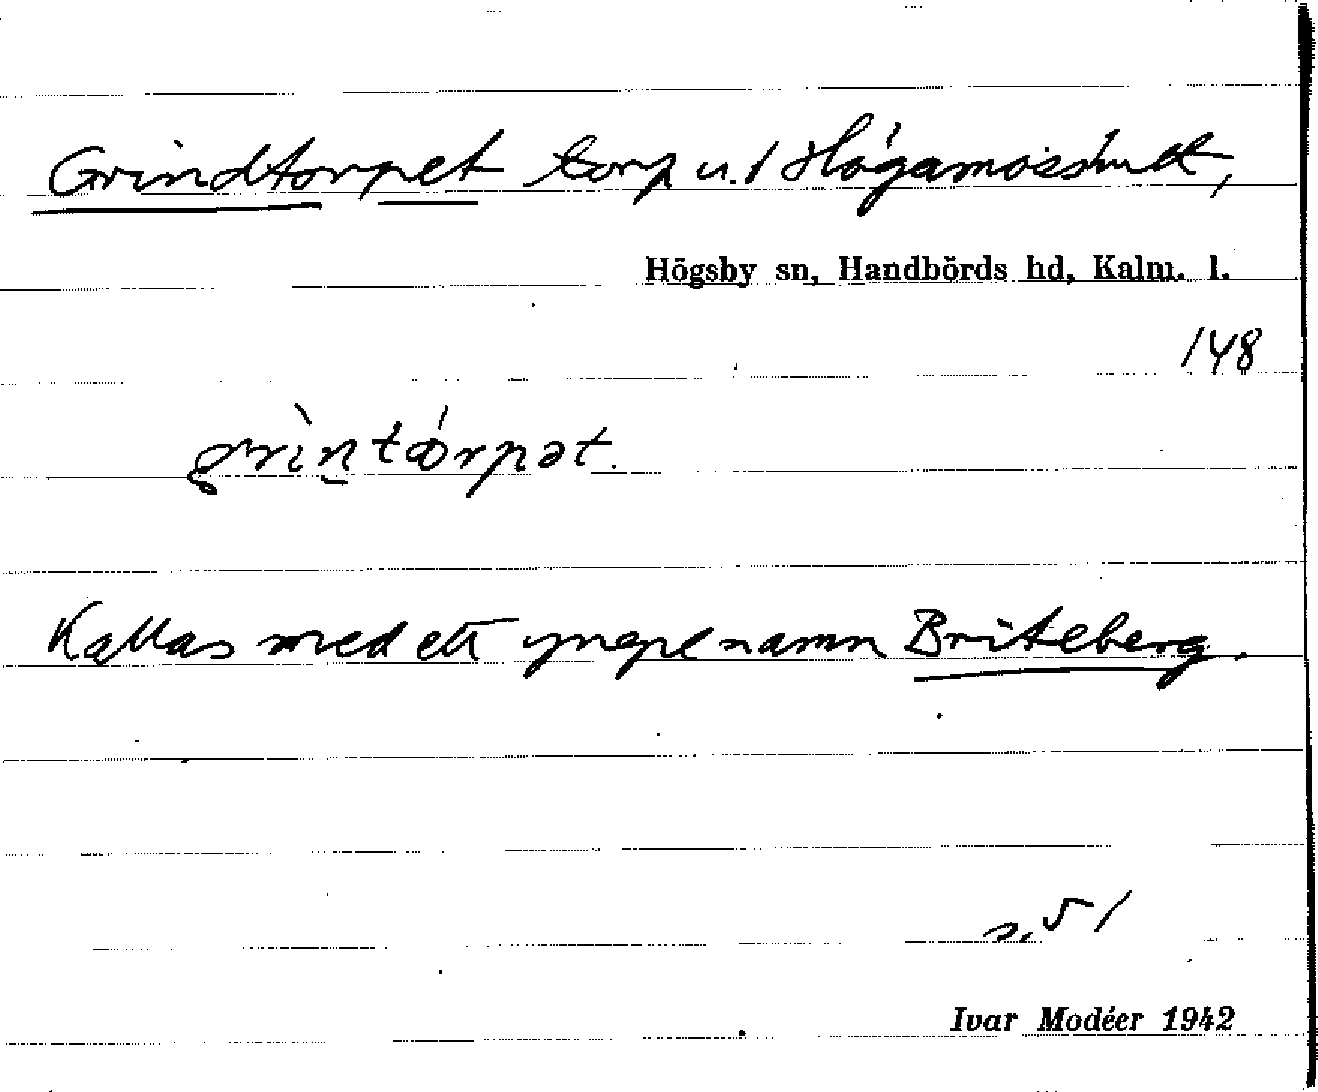 Grindtorpet torp u. / Högamosshult,
Högsby sn, Handbörds hd, Kalm. l.
148
grìntǿrpət.
Kallas med ett yngre namn Briteberg.
s. 51
Ivar Modéer 1942